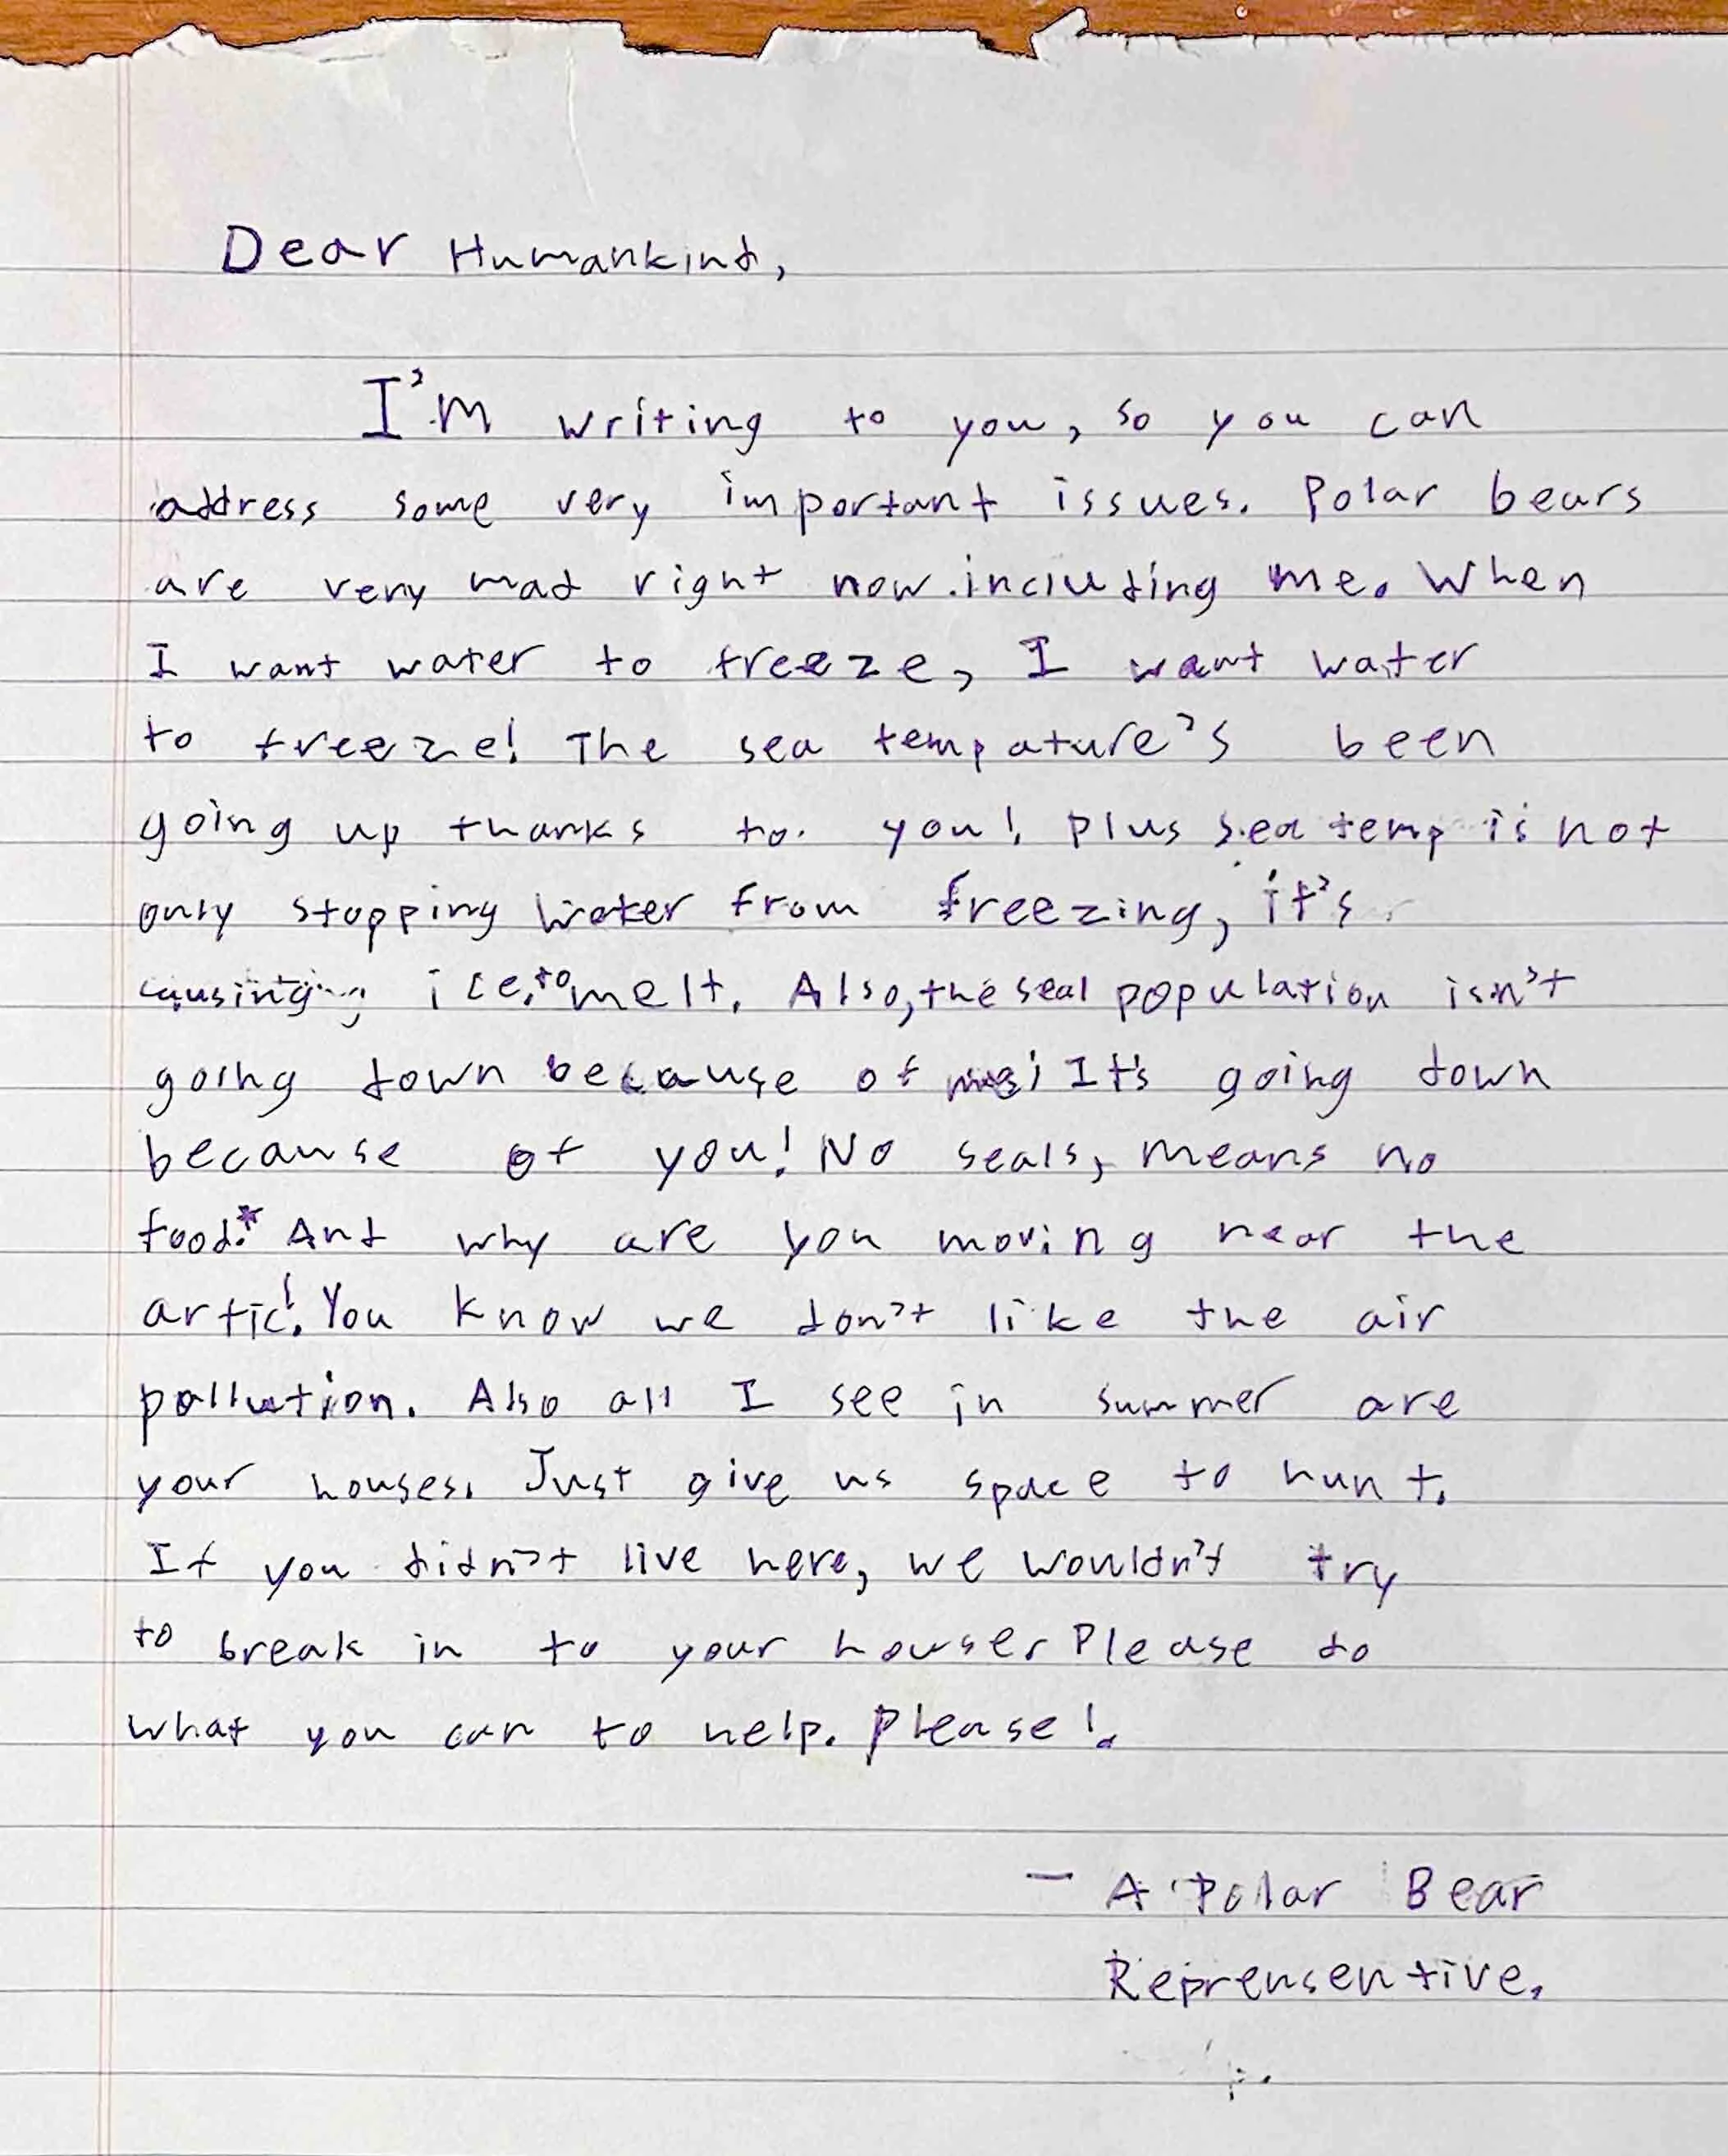 Dear Humankind,
I'm writing to you, so you can
address some very important issues. Polar bears
are very mad right now including me. When
I want water to freeze, I want water
to freeze! The sea tempature's been
going up thanks to you! Plus sea temp is not
only stopping water from freezing, it's
causing ice to melt. Also, the seal population isn't
going down because of me! It's going down
because of you! No seals, means no
food.* And why are you moving near the
artic! You know we don't like the air
pollution. Also all I see in summer are
your houses. Just give us space to hunt.
If you didn't live here, we wouldn't try
to break in to your houses Please do
what you can to help. Please!
- A Polar Bear
Reprensentive.